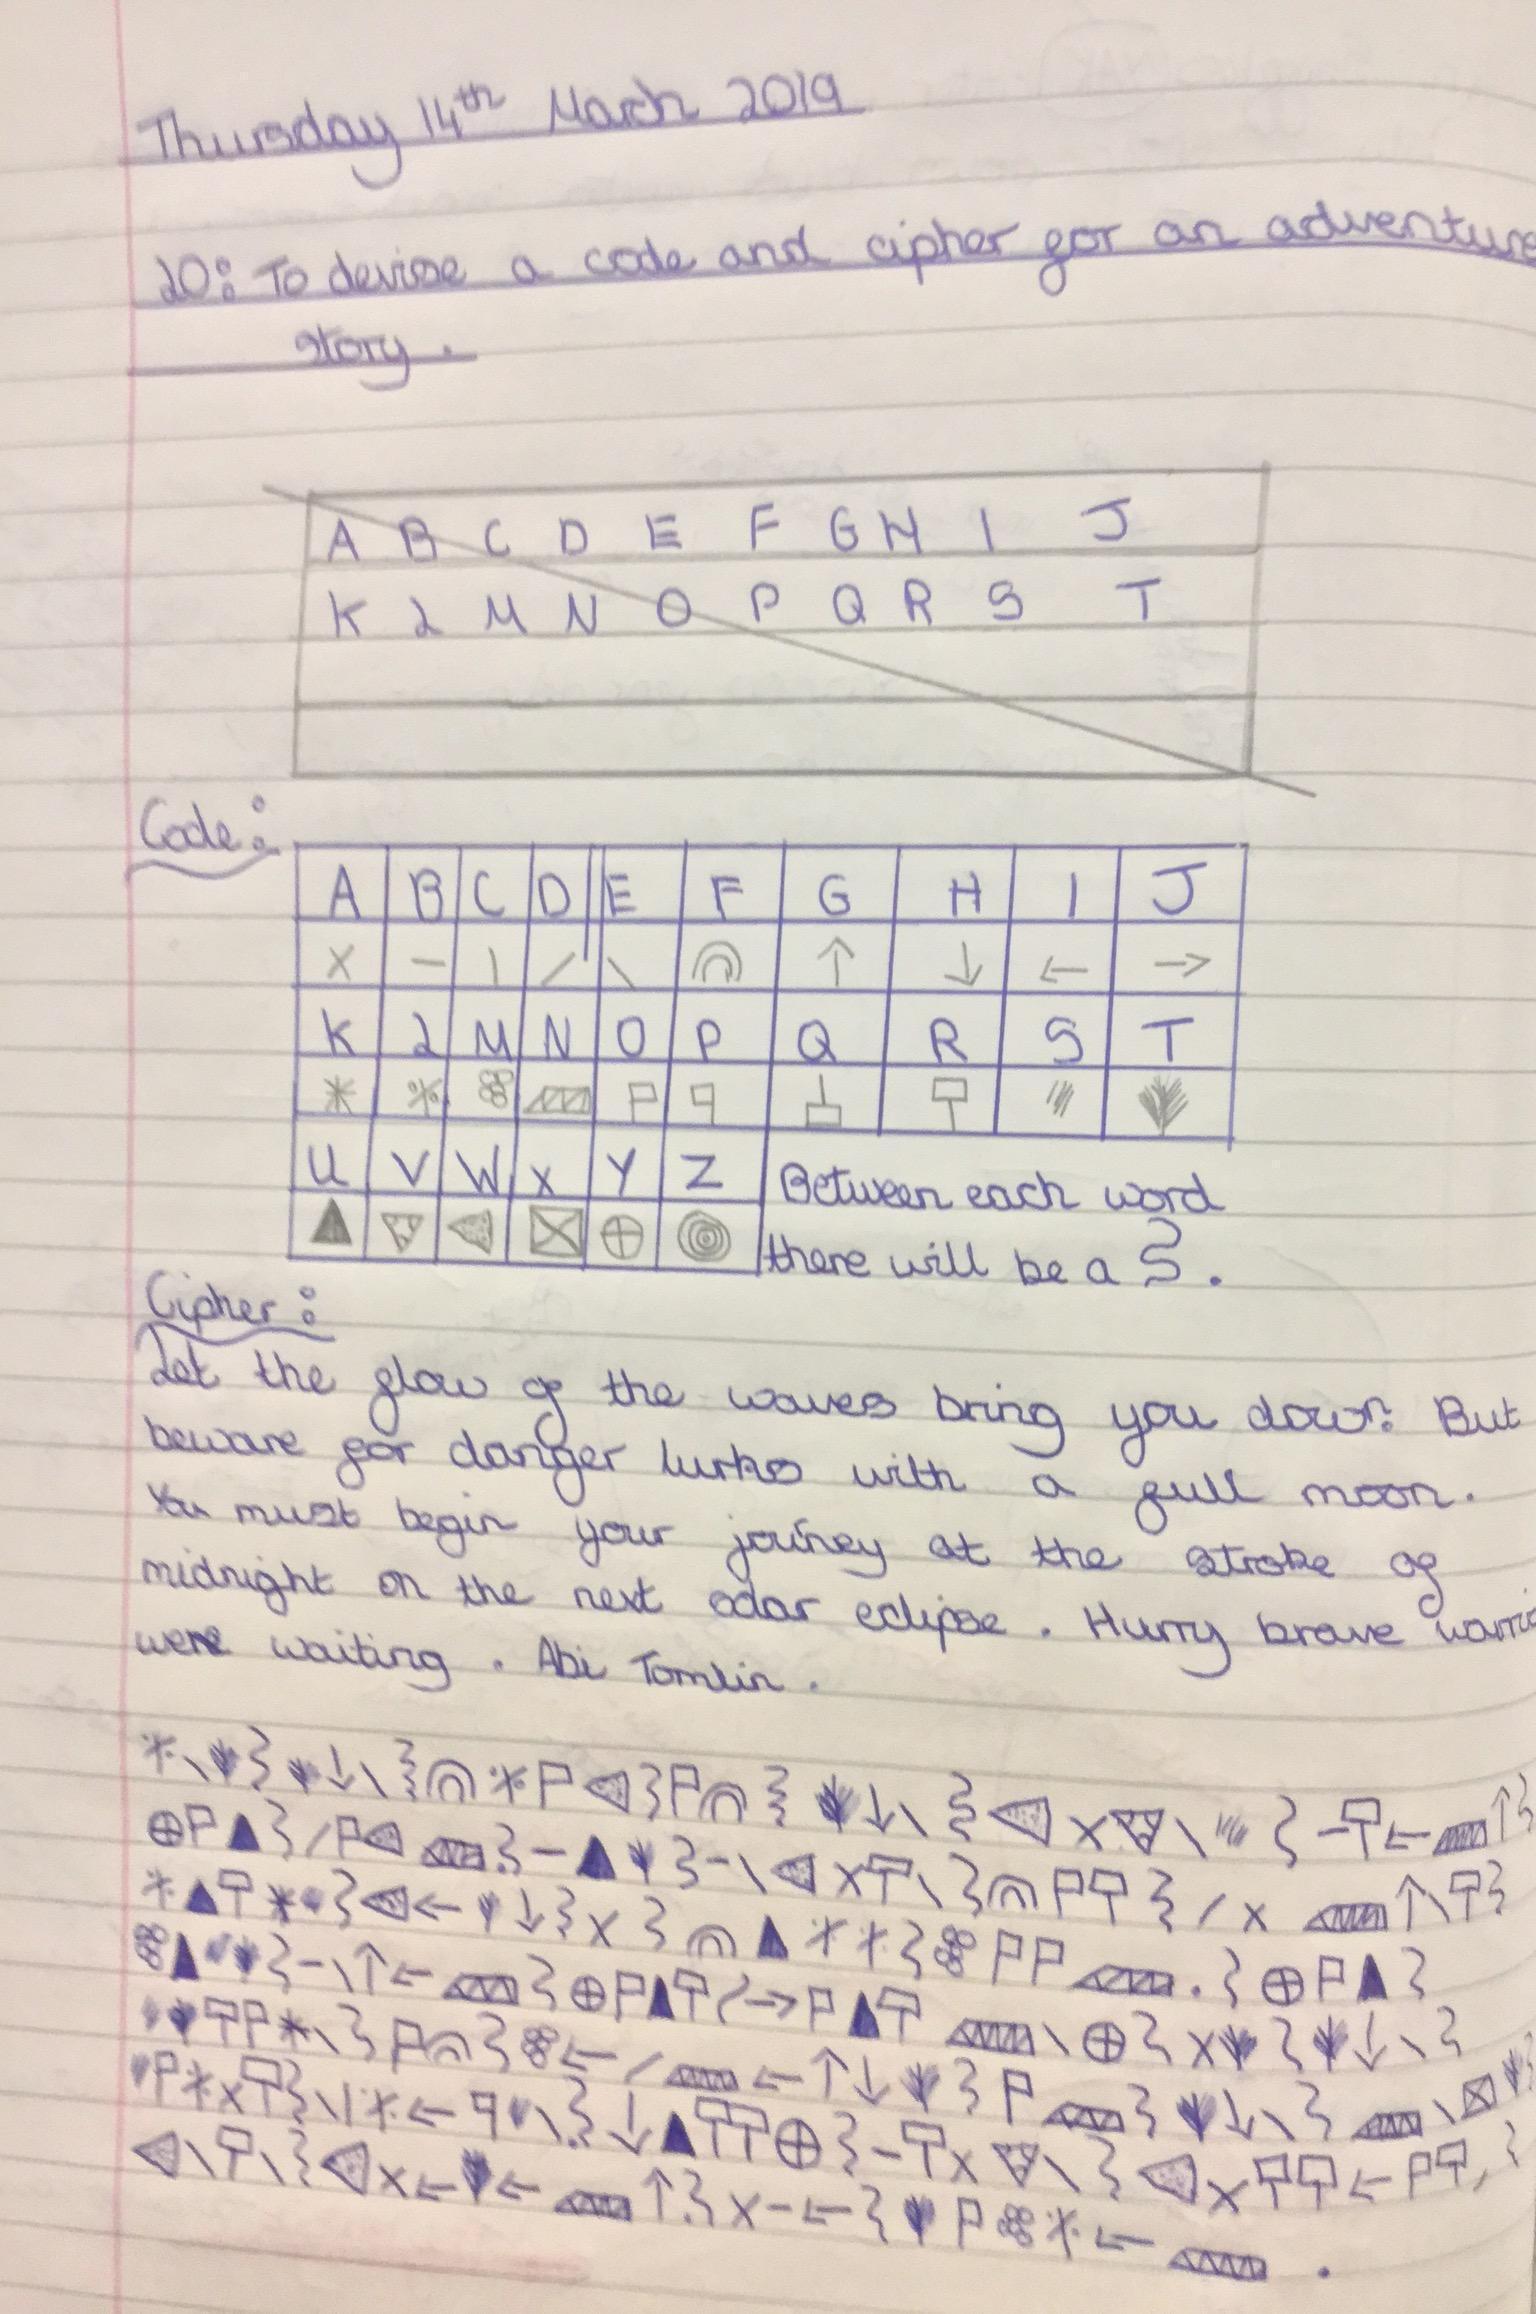 Thursday 14th March 2019
LO: To devise a code and cipher for an adventure
story.
A B C D E F G H I J
K L M N O P Q R S T
Code:
A B C D E F G H I J
K L M N O P Q R S T
U V W X Y Z
Between each word
there will be a
Cipher:
Let the glow of the waves bring you down. But
beware for danger lurks with a full moon.
You must begin your journey at the stroke of
midnight on the next solar eclipse. Hurry brave
were waiting. Abi Tomlin.